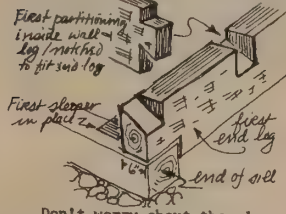 First partitioning
inside wall
log / notched
to fit end log
First sleeper
in place
first
end log
6"
end of sill
Don't worry about the